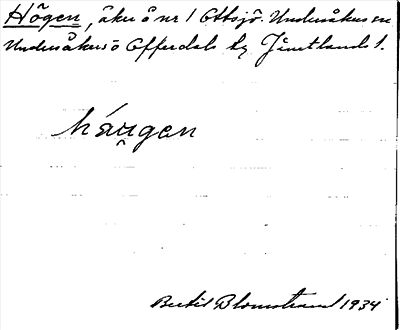 Högen, åker å nr 1 Ottsjö. Undersåkers sn
Undersåkers o Offerdals tg Jämtlands l.
háu̯gen
Bertil Blomstrand 1934